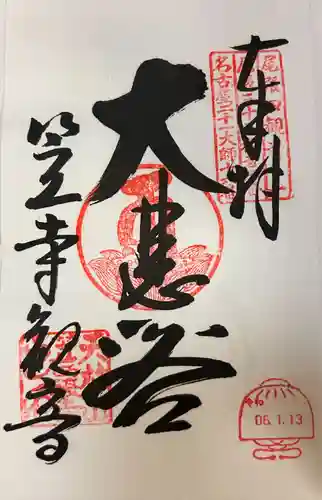 奉拝
尾張四観音
名古屋二十一大師
大悲閣
笠寺観音
令和
06.1.13